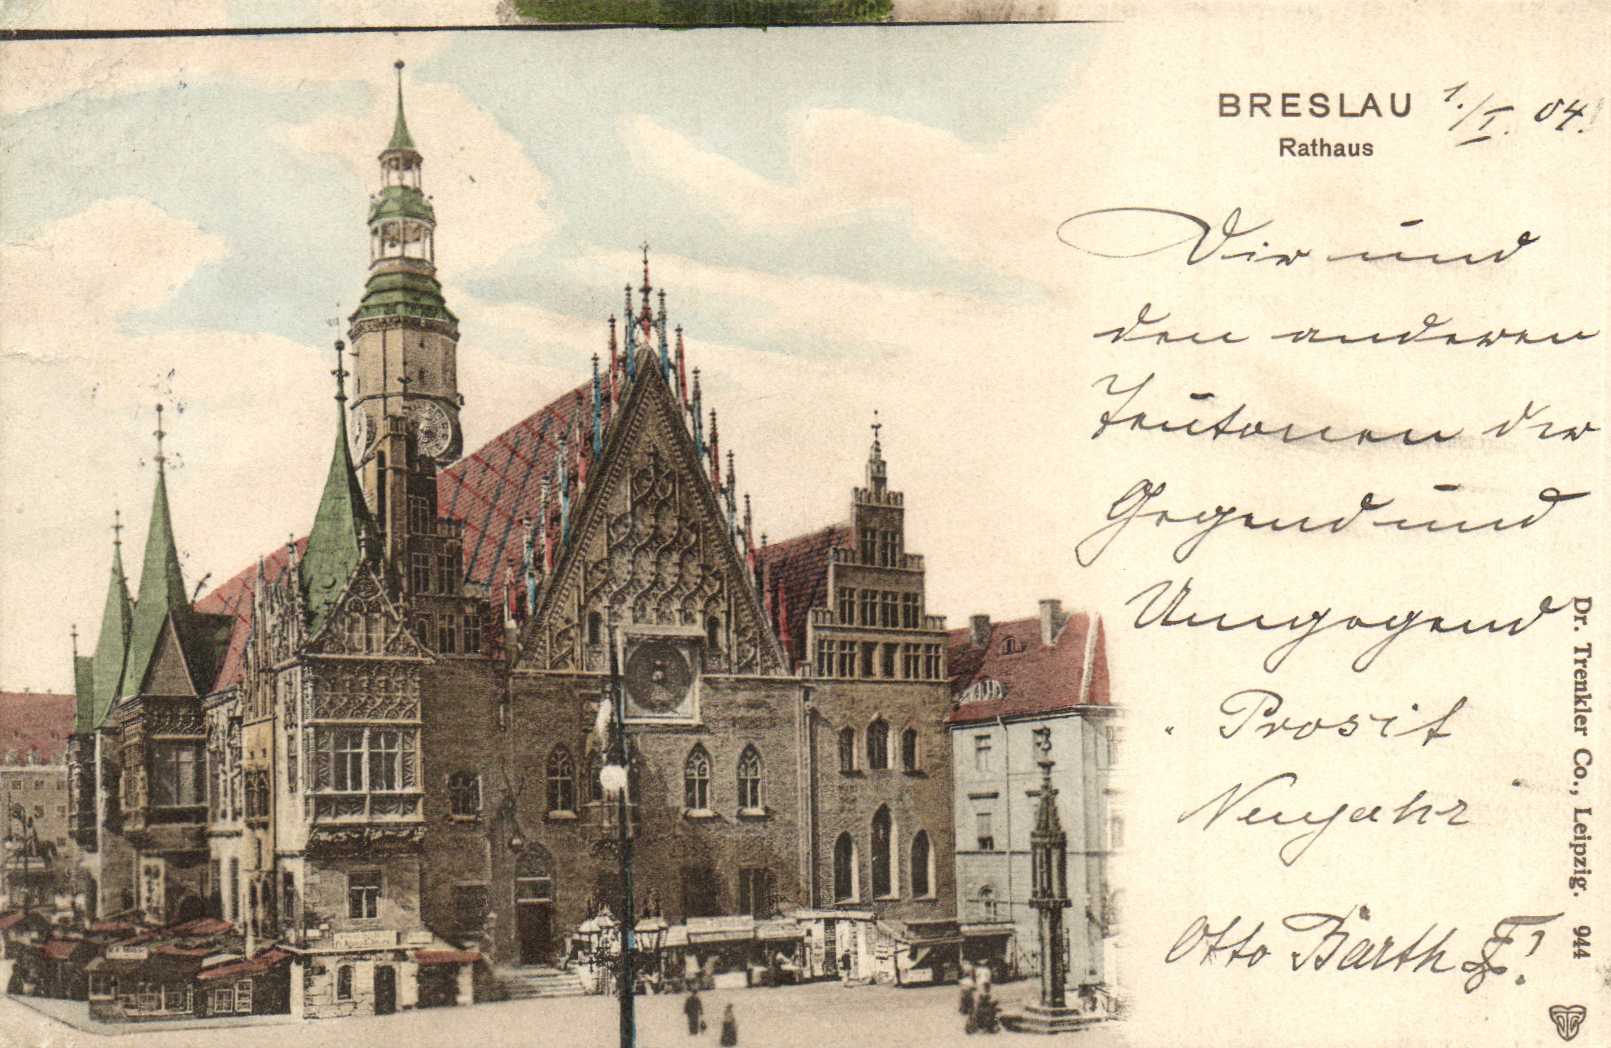 BRESLAU 1./I. 04.
Rathaus
Dir und
den anderen
Teutonen der
Gegend und
Umgegend
Prosit
Neujahr
Otto Barth
Dr. Trenkler Co., Leipzig. 944